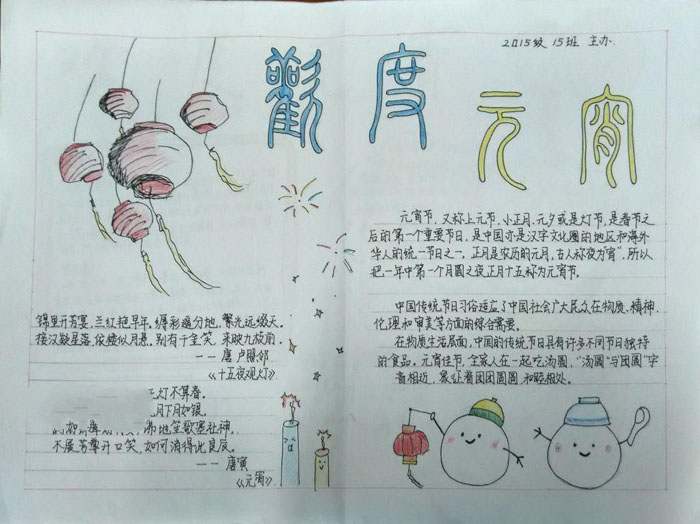 2015级 15班 主办.
歡度元宵
元宵节,又称上元节、小正月、元夕或是灯节,是春节之
后的第一个重要节日,是中国亦是汉字文化圈的地区和海外
华人的统一节日之一。正月是农历的元月,古人称夜为"宵",所以
把一年中第一个月圆之夜正月十五称为元宵节。
中国传统节日习俗适应了中国社会广大民众在物质、精神、
伦理和审美等方面的综合需要。
在物质生活层面,中国的传统节日具有许多不同节日独特
的食品。元宵佳节,全家人在一起吃汤圆,"汤圆"与"团圆"字
音相近,象征着团团圆圆和睦相处。
锦里开芳宴,兰红艳早年。缛彩遥分地,繁光远缀天。
接汉疑星落,依楼似月悬。别有千金笑,来映九枝前。
——唐 卢照邻
《十五夜观灯》
灯不算春。
月下月如银。
沸地笙歌赛社神。
不展芳尊开口笑,如何消得此良辰。
——唐寅
《元宵》